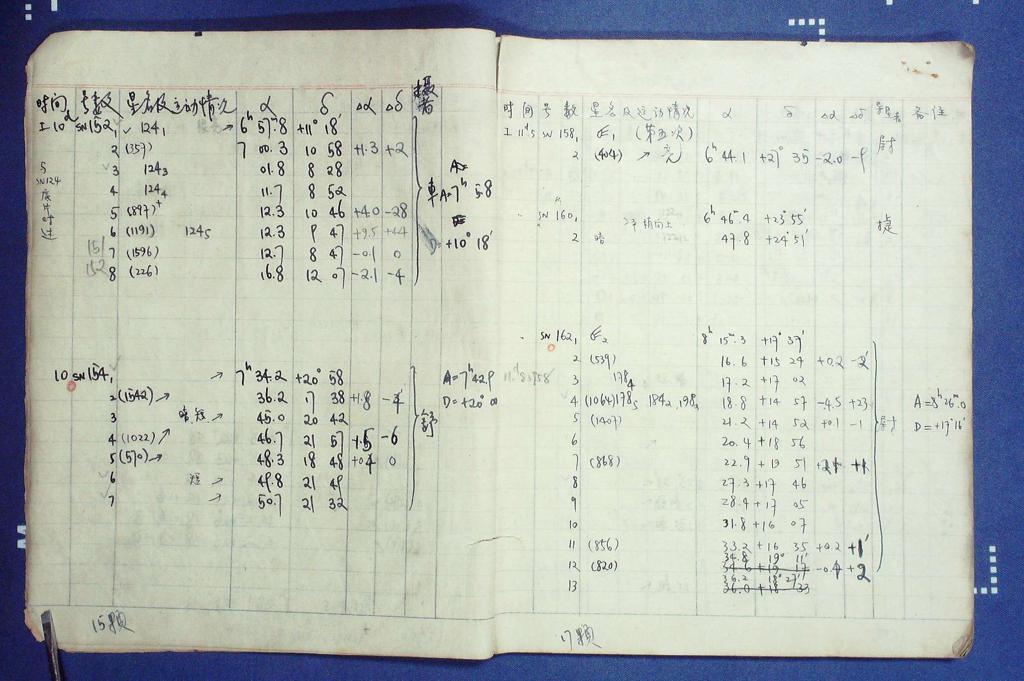 时间 号数 星名及运动情况 α δ Δα Δδ 摄者
I 10 SN152, 1 1241 → 6h 57m.8 +11° 18'
2 (357) 7 00.3 10 58 +1.3 +2
3 1243 01.8 8 28
4 1244 11.7 8 52
5 (897)+ 12.3 10 46 +4.0 -28
6 (1191) 1245 12.3 9 47 +9.5 +44
7 (1596) 12.7 8 47 -0.1 0
8 (226) 16.8 12 07 -2.1 -4
SN124 底片
151
152
A=7h 58
D=+10° 18'
10 SN154, 1 → 7h 34.2 +20° 58
2 (1542) → 36.2 17 38 +1.8 -4'
3 暗短 → 45.0 20 42
4 (1022) ↗ 46.7 21 57 +1.5 -6
5 (570) → 48.3 18 48 +0.4 0
6 短 → 49.8 21 49
7 → 50.7 21 32
A=7h 42.9
D=+20° 00
舒
15颗
时间 号数 星名及运动情况 α δ Δα Δδ 备注
I 11d.5 SN 158, 1 (第五次) 尉
2 (404) → 亮 6h 44.1 +27° 35 -2.0 -9
SN 160, 1 6h 46m.4 +23° 55' 捷
2 暗 47.8 +24° 51'
SN 162, 1 8h 15m.3 +17° 37'
2 (539) 16.6 +15 24 +0.2 -2'
3 1784 17.2 +17 02
4 (1064) 1785 1842, 1982 18.8 +14 57 -4.5 +23
5 (1407) 21.2 +14 52 +0.1 -1
6 20.4 +18 56
7 (868) 22.9 +19 51
8 27.3 +17 46
9 28.4 +17 05
10 31.8 +16 07
11 (856) 33.2 +16 35 +0.2 +1'
34.8 19° 11'
12 (820) 34.6 +19 17 -0.4 +2
36.2 18° 27'
13 36.0 +18 33
尉
A=8h 26m.0
D=+17° 16'
17颗